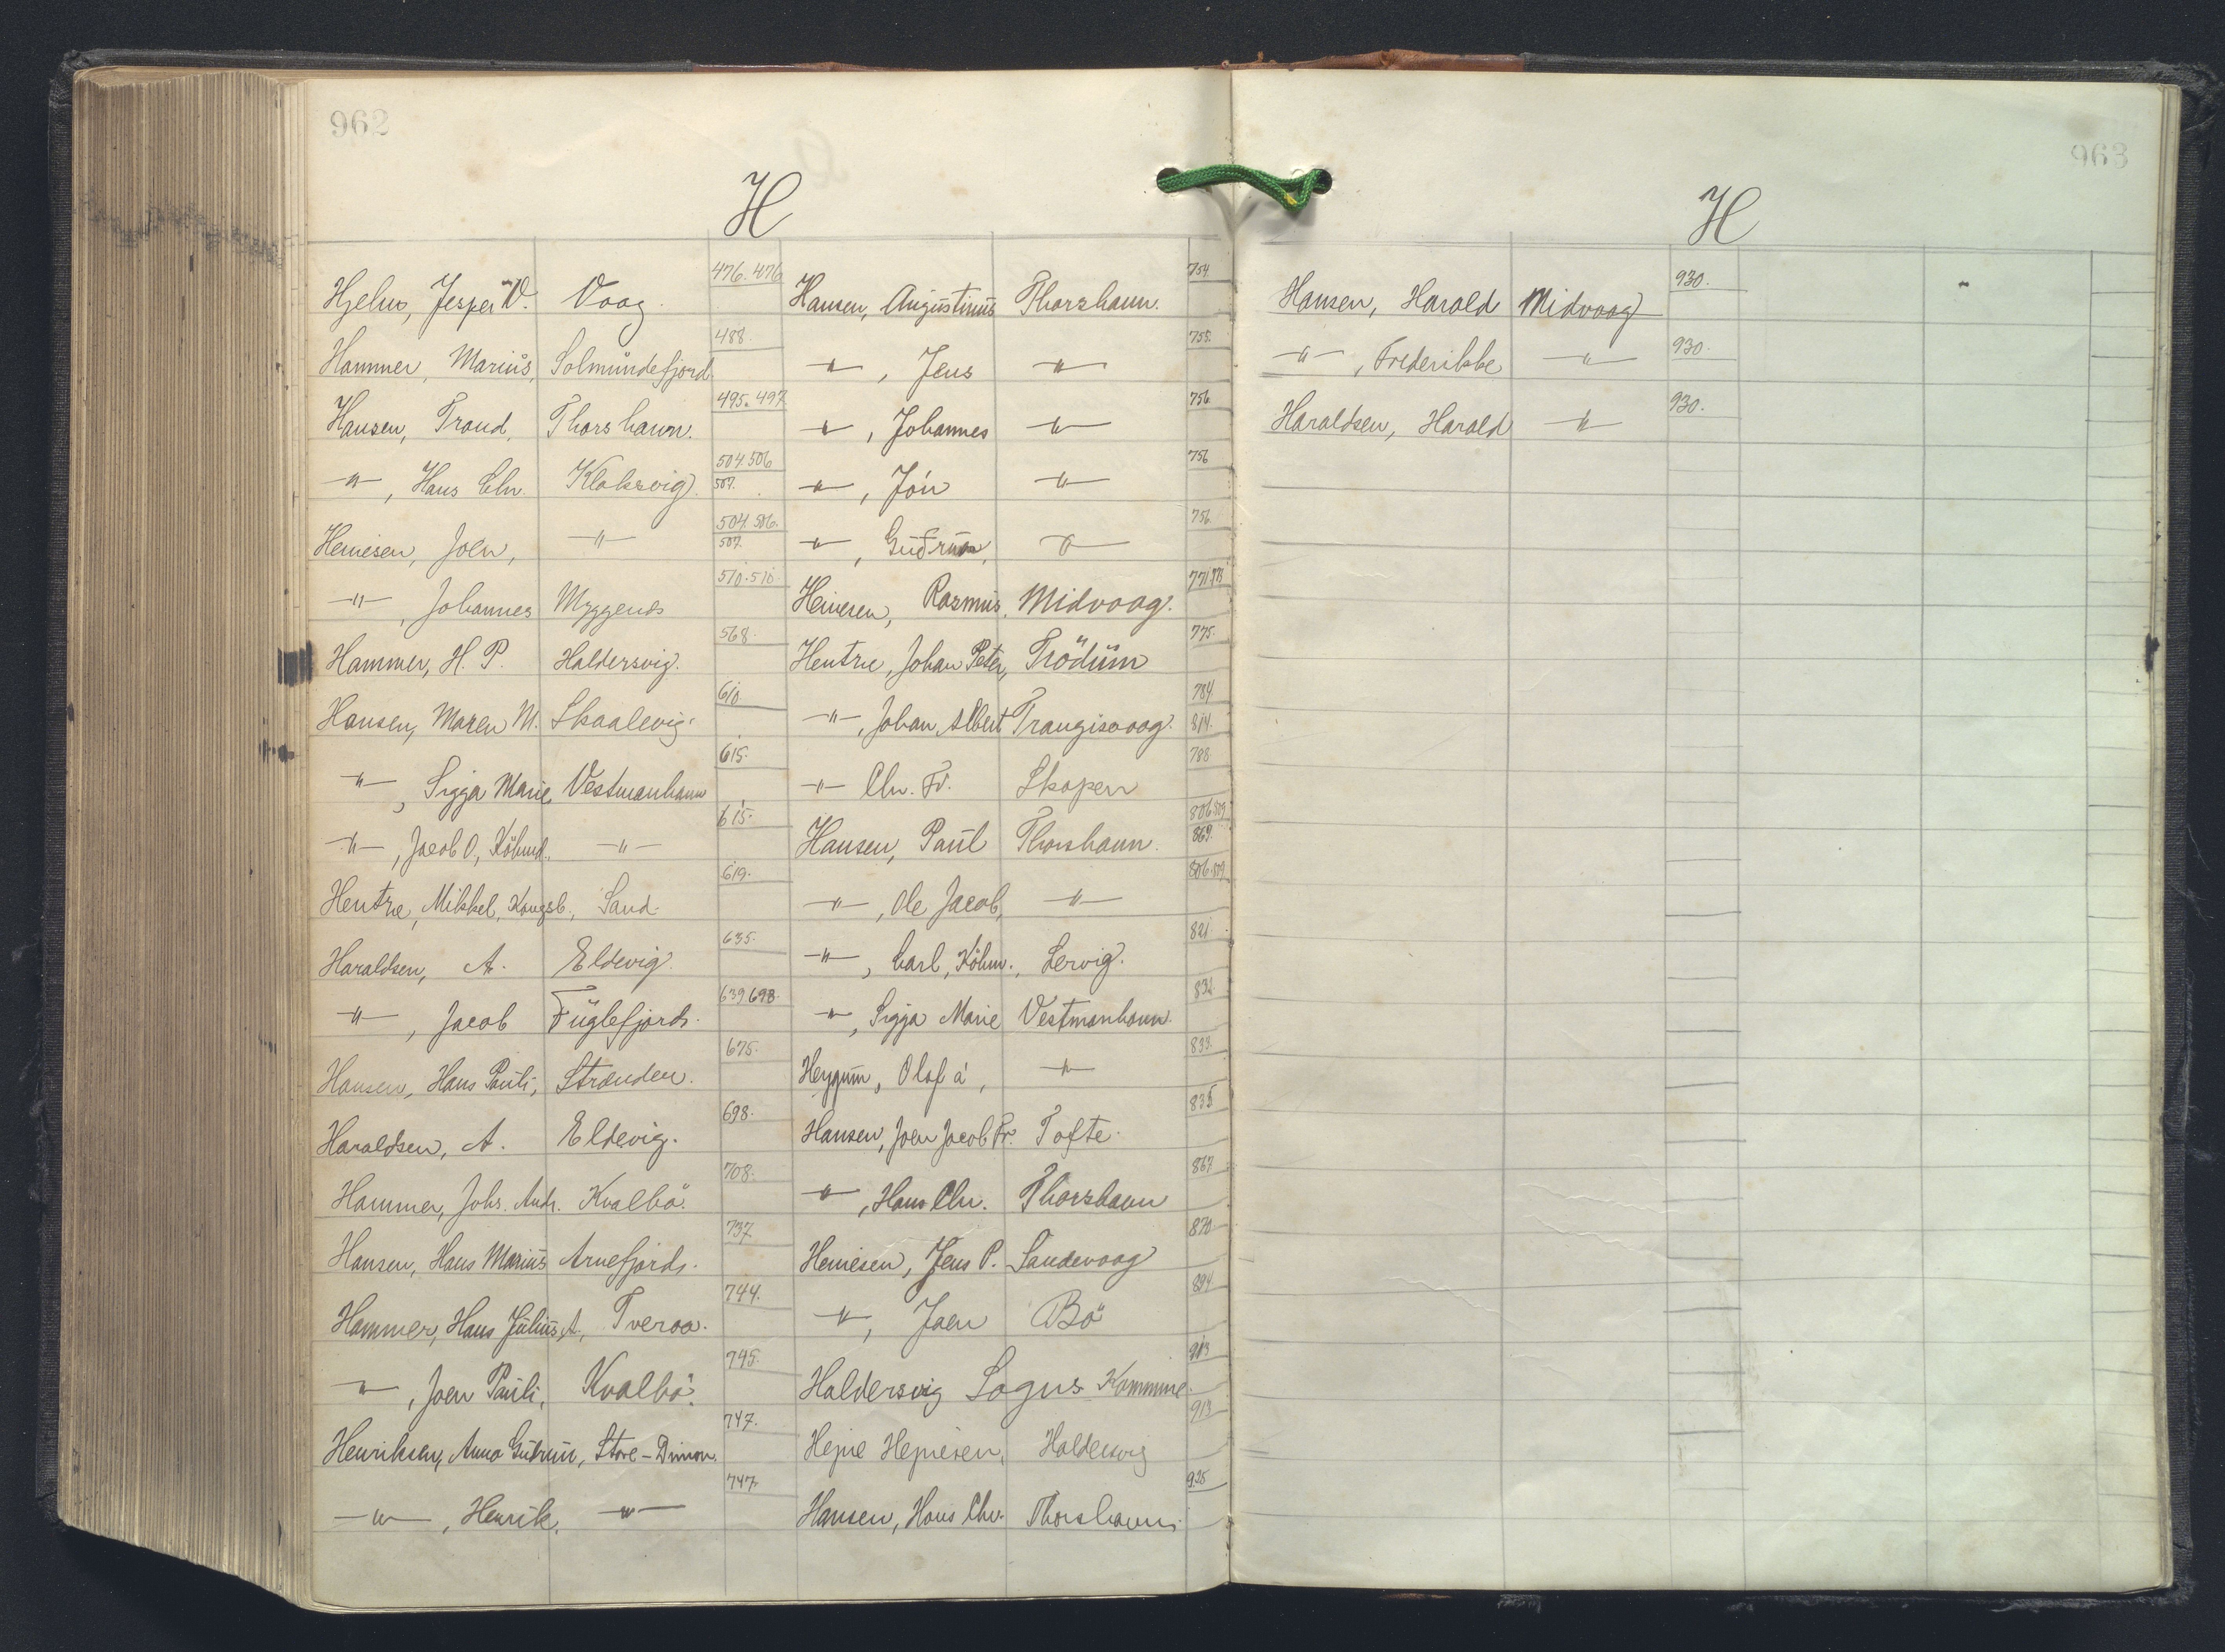 962
H
Hjelm, Jesper W. Vaag. 476. 476
Hammer, Marius, Solmundefjord 488.
Hansen, Trond, Thorshavn. 495. 497
—"—, Hans Chr. Klaksvig. 504. 506 507.
Heinesen, Joen, —"— 504. 506. 507.
—"—, Johannes Myggenæs 510. 510.
Hammer, H. P. Haldersvig. 568.
Hansen, Maren M. Skaalevig. 610
—"—, Sigga Marie, Vestmanhavn 615.
—"—, Jacob O., Köbmd. —"— 615.
Hentze, Mikkel, Kongsb., Sand. 619.
Haraldsen, A. Eldevig. 635.
—"—, Jacob Fuglefjord. 639. 698.
Hansen, Hans Pauli, Stranden. 675.
Haraldsen, A. Eldevig. 698.
Hammer, Johs. Andr. Kvalbö. 708.
Hansen, Hans Marius Arnefjord. 737.
Hammer, Hans Julius A., Tveraa. 744.
—"—, Joen Pauli, Kvalbö. 745.
Henriksen, Anna Gudrun, Store-Dimon. 747.
—"—, Henrik, —"— 747.
Hansen, Augustinus Thorshavn. 754.
—"—, Jens —"— 755.
—"—, Johannes —"— 756.
—"—, Jón —"— 756
—"—, Gudrun, —"— 756.
Heinesen, Rasmus, Midvaag. 771.
Hentze, Johan Peter, Frödum 775.
—"—, Johan Albert Trangisvaag. 784 814.
—"— Chr. Fr. Skopen 788
Hansen, Paul Thorshavn. 806. 809 869.
—"—, Ole Jacob, —"— 806. 809
—"—, Carl, Köbm., Lervig. 821
—"—, Sigga Marie Vestmanhavn. 832
Heygum, Olaf á, —"— 833.
Hansen, Joen Jacob Fr. Tofte. 835
—"—, Hans Chr. Thorshavn 867
Heinesen, Jens P. Sandevaag 870
—"—, Joen Bö 894.
Haldersvig Sogns Kommune. 913
Hejne Hejnesen, Haldersvig 913
Hansen, Hans Chr. Thorshavn. 925
963
H
Hansen, Harald Midvaag 930.
—"—, Frederikke —"— 930.
Haraldsen, Harald —"— 930.